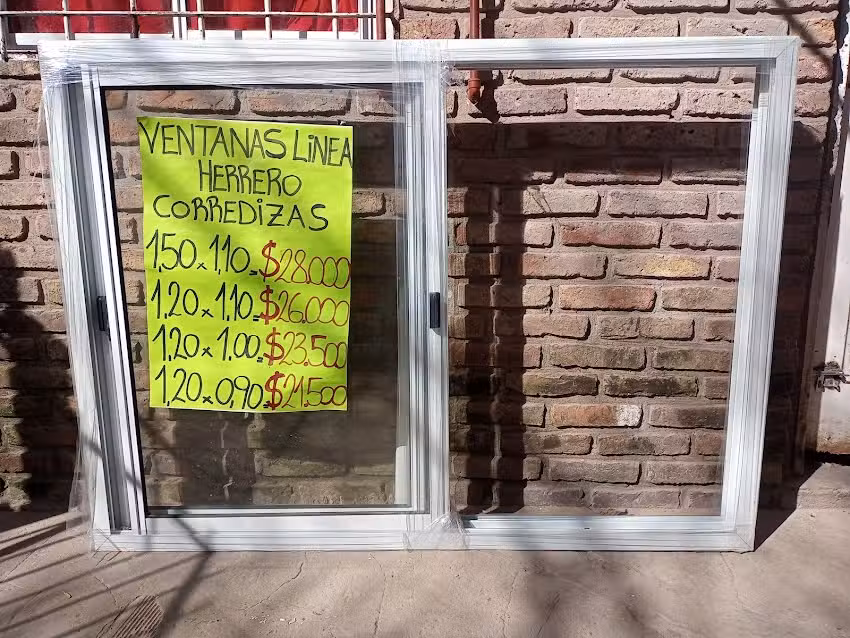 VENTANAS LiNEA
HERRERO
CORREDIZAS
1,50 x 1,10=$28.000
1,20 x 1,10=$26.000
1,20 x 1.00=$23.500
1,20 x 0,90=$21.500